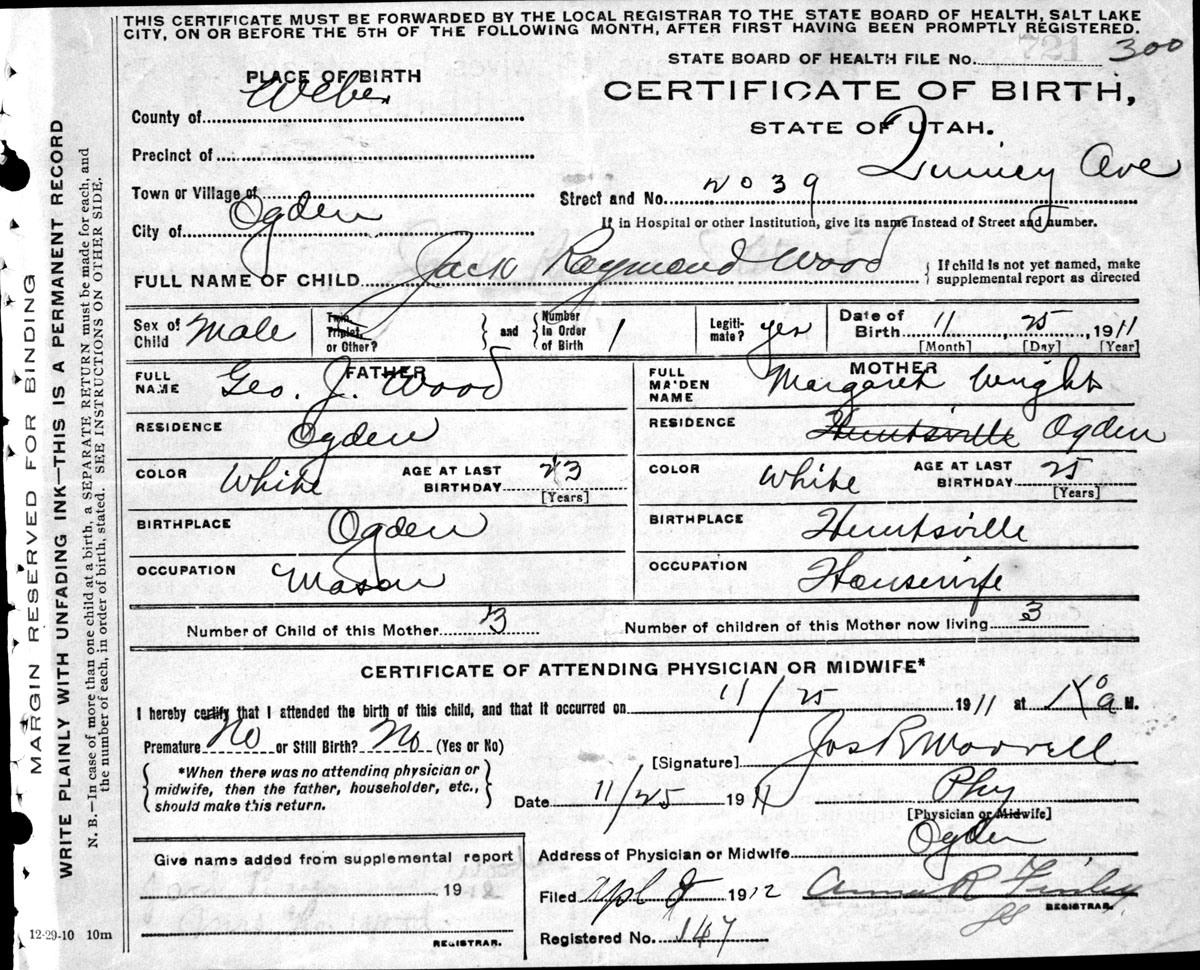 THIS CERTIFICATE MUST BE FORWARDED BY THE LOCAL REGISTRAR TO THE STATE BOARD OF HEALTH, SALT LAKE
CITY, ON OR BEFORE THE 5TH OF THE FOLLOWING MONTH, AFTER FIRST HAVING BEEN PROMPTLY REGISTERED.
721 300
STATE BOARD OF HEALTH FILE NO.
PLACE OF BIRTH
CERTIFICATE OF BIRTH,
STATE OF UTAH.
County of Weber
Precinct of
Town or Village of
Street and No. 2039 Quincy Ave
If in Hospital or other Institution, give its name Instead of Street and number.
City of Ogden
FULL NAME OF CHILD Jack Raymond Wood
{ If child is not yet named, make
supplemental report as directed
Sex of Child Male
Twin, Triplet, or Other? } and { Number In Order of Birth 1
Legitimate? yes
Date of Birth 11 25 1911
[Month] [Day] [Year]
FATHER
FULL NAME Geo. J. Wood
RESIDENCE Ogden
COLOR White AGE AT LAST BIRTHDAY 23
[Years]
BIRTHPLACE Ogden
OCCUPATION Mason
MOTHER
FULL MAIDEN NAME Margaret Wright
RESIDENCE Huntsville Ogden
COLOR White AGE AT LAST BIRTHDAY 25
[Years]
BIRTHPLACE Huntsville
OCCUPATION Housewife
Number of Child of this Mother 3
Number of children of this Mother now living 3
CERTIFICATE OF ATTENDING PHYSICIAN OR MIDWIFE*
I hereby certify that I attended the birth of this child, and that it occurred on 11/25 1911 at a M.
Premature No or Still Birth? No (Yes or No)
*When there was no attending physician or
midwife, then the father, householder, etc.,
should make this return.
[Signature] Jos R Morrell
Date 11/25 1911
Phy
[Physician or Midwife]
Address of Physician or Midwife Ogden
Give name added from supplemental report
19
REGISTRAR.
Filed Apl 8 1912 Anna R Finley
REGISTRAR.
Registered No. 147
12-29-10 10m
MARGIN RESERVED FOR BINDING
WRITE PLAINLY WITH UNFADING INK—THIS IS A PERMANENT RECORD
N. B.—In case of more than one child at a birth, a SEPARATE RETURN must be made for each, and
the number of each, in order of birth, stated. SEE INSTRUCTIONS ON OTHER SIDE.